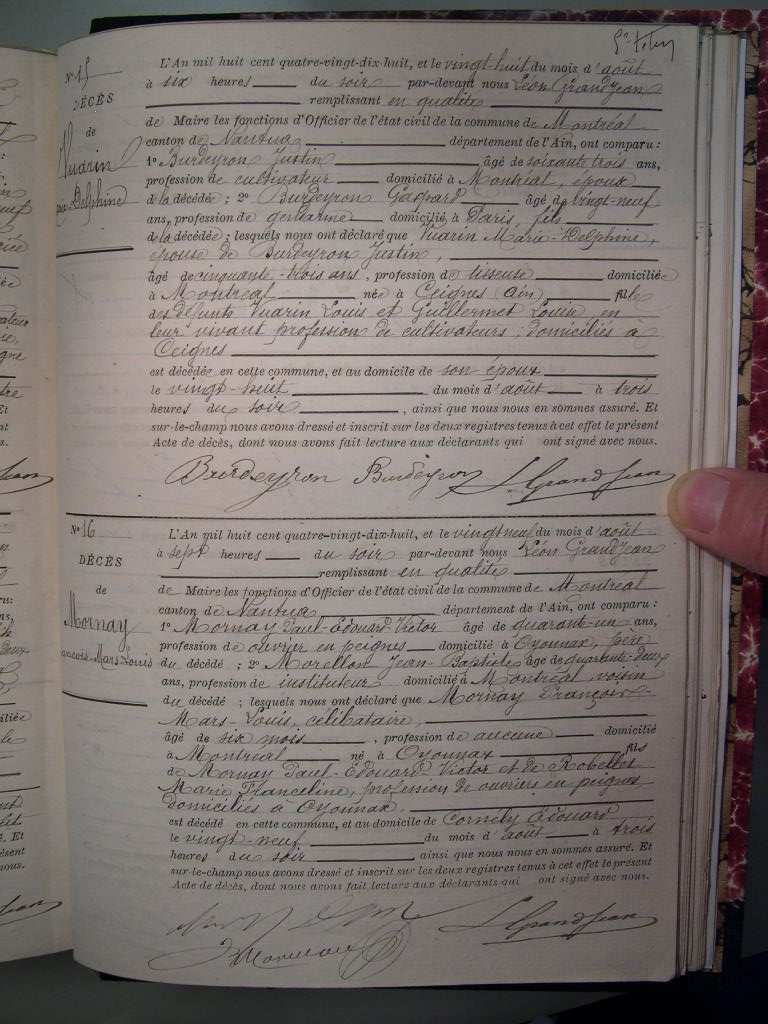 N° 15
DÉCÈS
de
Vuarin
Marie Delphine
L'An mil huit cent quatre-vingt-dix-huit, et le vingt-huit du mois d'août
à six heures du soir par-devant nous Léon Grandjean
remplissant en qualité
de Maire les fonctions d'Officier de l'état civil de la commune de Montréal
canton de Nantua département de l'Ain, ont comparu :
1° Burdeyron Justin âgé de soixante trois ans,
profession de cultivateur domicilié à Montréal, époux
de la décédée ; 2° Burdeyron Gaspard âgé de vingt-neuf
ans, profession de gendarme domicilié à Paris, fils
de la décédée ; lesquels nous ont déclaré que Vuarin Marie-Delphine,
épouse de Burdeyron Justin,
âgé de cinquante-trois ans, profession de tisseuse domiciliée
à Montréal née à Ceignes (Ain) fille
des défunts Vuarin Louis et Guillermet Louise, en
leur vivant profession de cultivateurs, domiciliés à
Ceignes
est décédée en cette commune, et au domicile de son époux
le vingt-huit du mois d'août à trois
heures du soir, ainsi que nous nous en sommes assuré. Et
sur-le-champ nous avons dressé et inscrit sur les deux registres tenus à cet effet le présent
Acte de décès, dont nous avons fait lecture aux déclarants qui ont signé avec nous.
Burdeyron Burdeyron L Grandjean
N° 16
DÉCÈS
de
Mornay
François-Mars-Louis
L'An mil huit cent quatre-vingt-dix-huit, et le vingt neuf du mois d'août
à sept heures du soir par-devant nous Léon Grandjean
remplissant en qualité
de Maire les fonctions d'Officier de l'état civil de la commune de Montréal
canton de Nantua département de l'Ain, ont comparu :
1° Mornay Paul-Édouard-Victor âgé de quarante-un ans,
profession de ouvrier en peignes domicilié à Oyonnax, père
du décédé ; 2° Morellon Jean-Baptiste âgé de quarante-deux
ans, profession de instituteur domicilié à Montréal, voisin
du décédé ; lesquels nous ont déclaré que Mornay François-
Mars-Louis, célibataire,
âgé de six mois, profession de aucune domicilié
à Montréal né à Oyonnax fils
de Mornay Paul-Édouard Victor et de Robellet
Marie Franceline, profession de ouvriers en peignes
domiciliés à Oyonnax.
est décédé en cette commune, et au domicile de Cornely Édouard
le vingt-neuf du mois d'août à trois
heures du soir ainsi que nous nous en sommes assuré. Et
sur-le-champ nous avons dressé et inscrit sur les deux registres tenus à cet effet le présent
Acte de décès, dont nous avons fait lecture aux déclarants qui ont signé avec nous.
L Grandjean